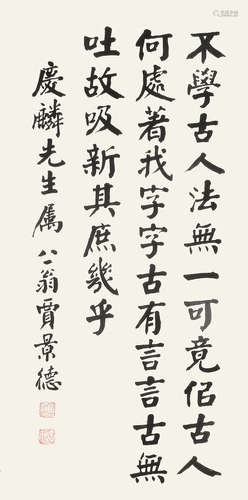 不學古人法無一可竟佀古人
何處著我字字古有言言古無
吐故吸新其庶幾乎
慶麟先生属 八一翁賈景德